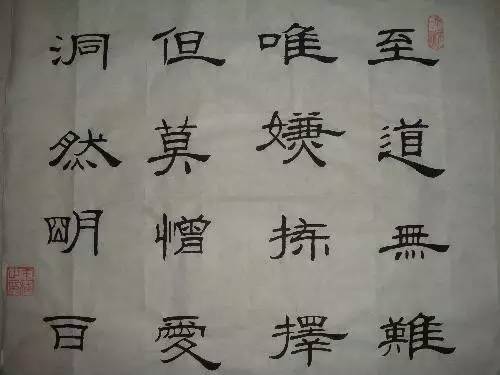 至道無難
唯嫌揀擇
但莫憎愛
洞然明百